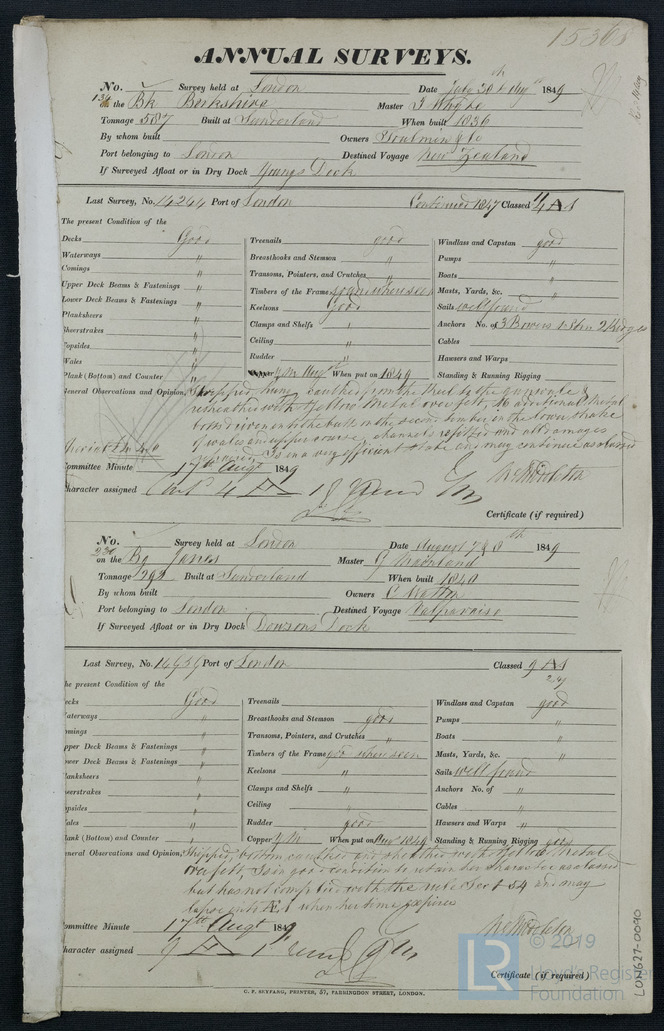 15365
ANNUAL SURVEYS.
No. Survey held at London Date July 30th Augt 1849
on the Bk Berkshire Master J Whyte
Tonnage 587 Built at Sunderland When built 1836
By whom built Owners Toulmin & Co
Port belonging to London Destined Voyage New Zealand
If Surveyed Afloat or in Dry Dock Youngs Dock
Last Survey, No. 14244 Port of London Continued 1847 Classed A 1
The present Condition of the
Decks Good Treenails good Windlass and Capstan good
Waterways " Breasthooks and Stemson " Pumps "
Comings " Transoms, Pointers, and Crutches " Boats "
Upper Deck Beams & Fastenings " Timbers of the Frame good when seen Masts, Yards, &c. "
Lower Deck Beams & Fastenings " Keelsons Good Sails well found
Planksheers " Clamps and Shelfs " Anchors No. of 3 Bowers 1 Stm 2 Kedges
Sheerstrakes " Ceiling " Cables "
Topsides " Rudder " Hawsers and Warps "
Wales " Y.M. Augt When put on 1849 Standing & Running Rigging "
Plank (Bottom) and Counter "
General Observations and Opinion, Stripped, caulked from the keel to the gunwale &
resheathed with Yellow Metal over felt, additional Metal
bolts given in the butts in the second timber in the down strake
of wales and upper course channels refitted and all damages
repaired. Is in a very efficient state and may continue as classed
Committee Minute 17th Augt 1849
Character assigned A 1
Certificate (if required)
No. Survey held at London Date August 7 & 8th 1849
on the Bg Janes Master G Moorland
Tonnage 292 Built at Sunderland When built 1840
By whom built Owners
Port belonging to London Destined Voyage Valparaiso
If Surveyed Afloat or in Dry Dock Dowsons Dock
Last Survey, No. Port of London Classed 9 A 1
The present Condition of the
Decks Good Treenails Windlass and Capstan good
Waterways " Breasthooks and Stemson good Pumps "
Comings " Transoms, Pointers, and Crutches " Boats "
Upper Deck Beams & Fastenings " Timbers of the Frame good when seen Masts, Yards, &c. "
Lower Deck Beams & Fastenings " Keelsons " Sails well found
Planksheers " Clamps and Shelfs " Anchors No. of "
Sheerstrakes " Ceiling " Cables "
Topsides " Rudder good Hawsers and Warps "
Wales " Copper Y.M. When put on Augt 1849 Standing & Running Rigging good
Plank (Bottom) and Counter "
General Observations and Opinion, Stripped, bottom caulked and sheathed with Yellow Metal
over felt. Is in good condition to retain her character as classed
but has not complied with the rule Sect 54 and may
lapse into Æ 1 when her time expires
Committee Minute 17th Augt 1849
Character assigned 9 A 1
Certificate (if required)
C. F. SEYFANG, PRINTER, 57, FARRINGDON STREET, LONDON.
LON627-0090
LR © 2019
Lloyd's Register
Foundation